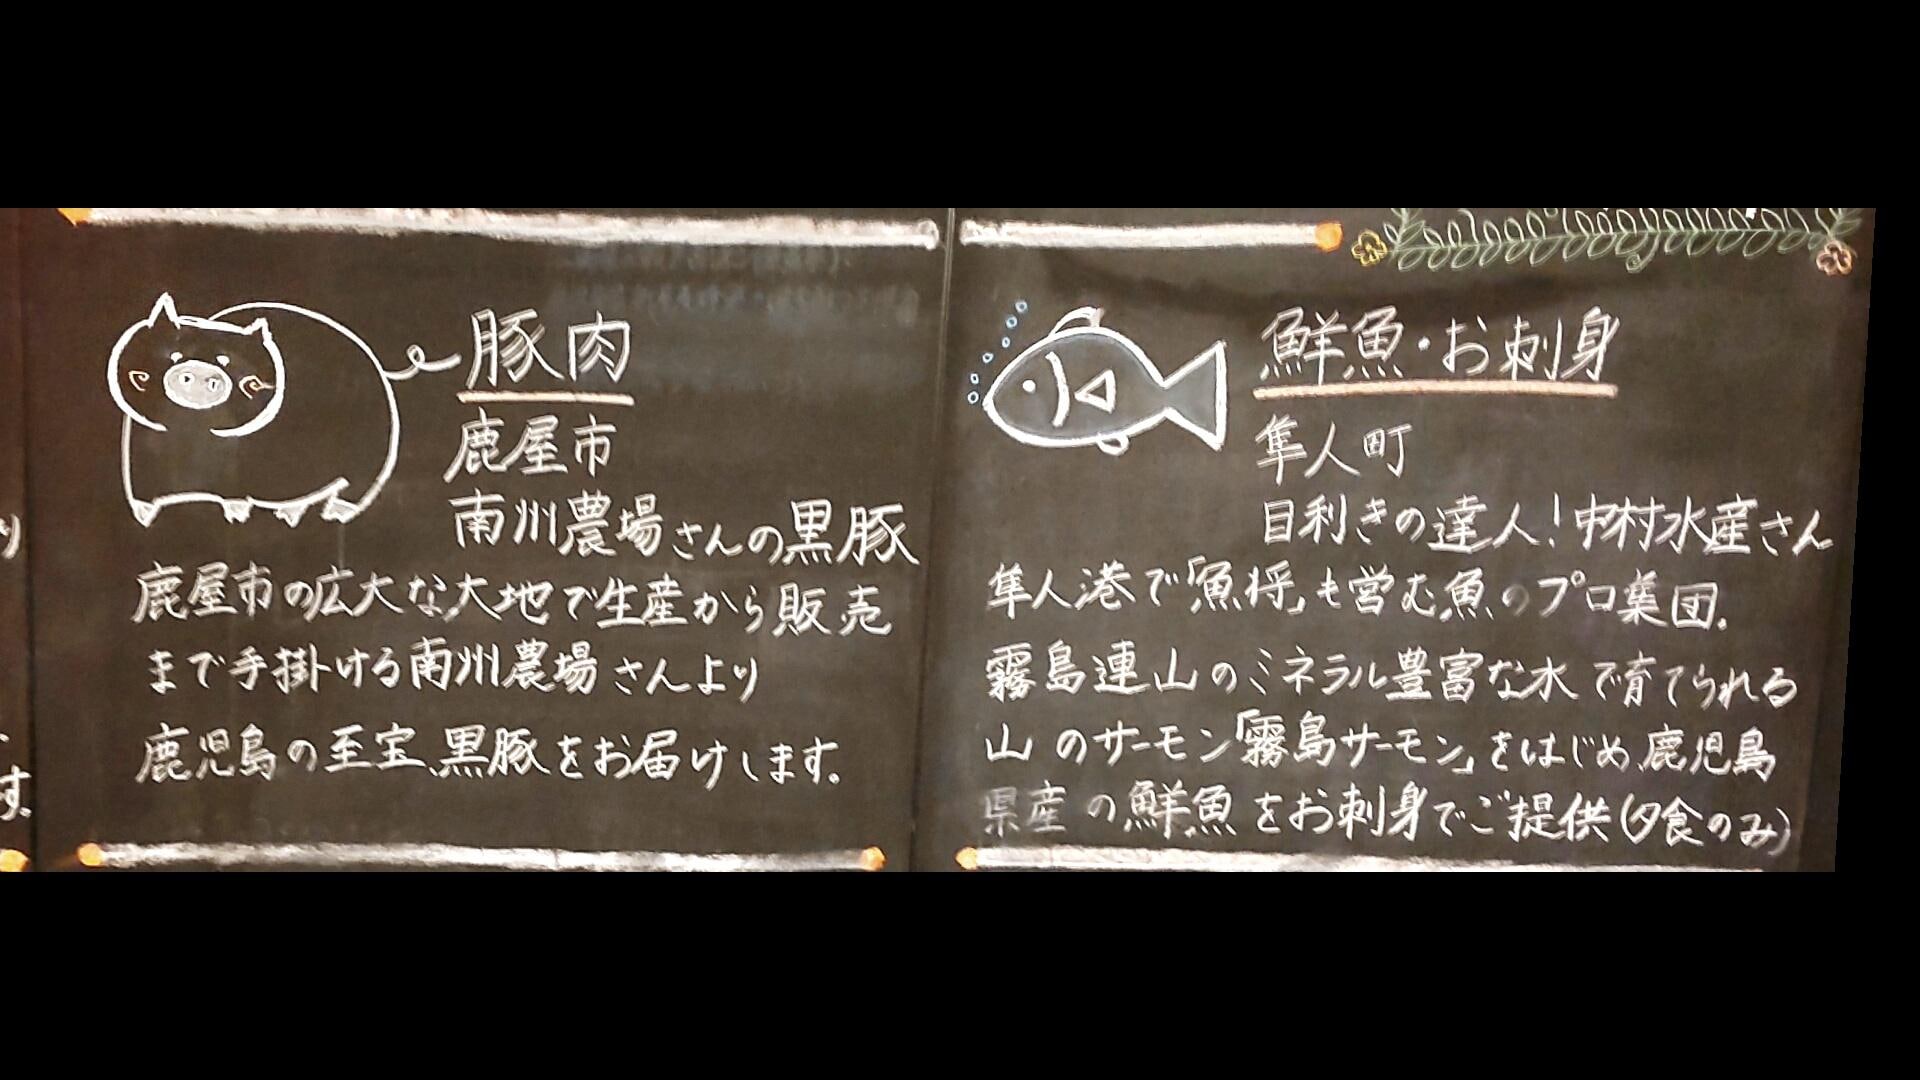 豚肉
鹿屋市
南州農場さんの黒豚
鹿屋市の広大な大地で生産から販売
まで手掛ける南州農場さんより
鹿児島の至宝、黒豚をお届けします。
鮮魚・お刺身
隼人町
目利きの達人!中村水産さん
隼人港で「魚将」も営む魚のプロ集団。
霧島連山のミネラル豊富な水で育てられる
山のサーモン「霧島サーモン」をはじめ、鹿児島
県産の鮮魚をお刺身でご提供(夕食のみ)
り
す。